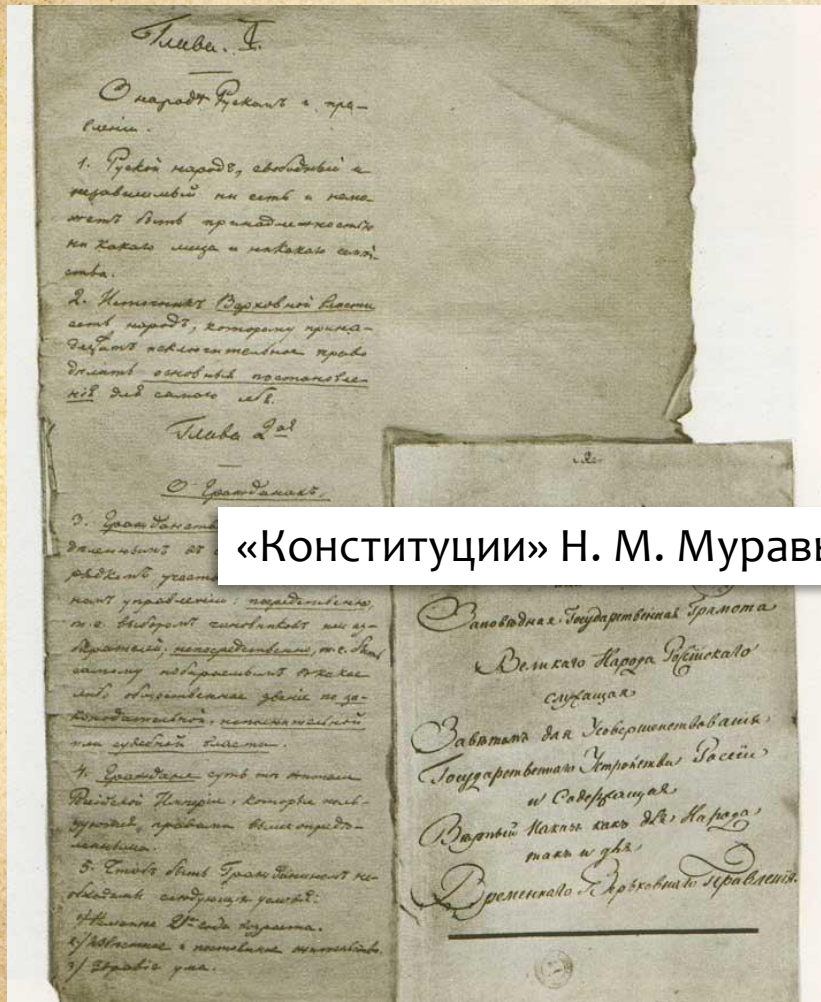 Глава. I.
О народѣ Рускомъ и пра-
вленіи.
1. Руской народъ, свободный и
независимый не есть и неmo-
жетъ быть принадлежностью
ни какого лица и никакого семѣй-
ства.
2. Источникъ Верховной власти
есть народъ, которому прина-
длежитъ исключительное право
дѣлать основныя постановле-
нія для самаго себя.
Глава 2ая
О Гражданахъ.
3. Гражданств
рядкомъ участ
номъ управленіи: посредственно,
т. е. выборомъ чиновниковъ или из-
бирателей; непосредственно, т. е. быть
самому избираемымъ въ какое
либо общественное званіе по за-
конодательной, исполнительной
или судебной власти.
4. Граждане суть тѣ жители
Россійской Имперіи, которые поль-
зуются правами выше опредѣ-
ленными.
5. Чтобъ быть Гражданиномъ не-
обходимы слѣдующія условія:
1/ Не менѣе 21го года возраста.
2/ Известное и постоянное жительство.
3/ Здравіе ума.
«Конституции» Н. М. Муравь
2
Заповѣдная Государственная Грамота
Великаго Народа Россійскаго
служащая
Завѣтомъ для Усовершенствованія
Государственнаго Устройства Россіи
и Содержащая
Вѣрный Наказъ какъ для Народа
такъ и для
Временнаго Верховнаго Правленія.